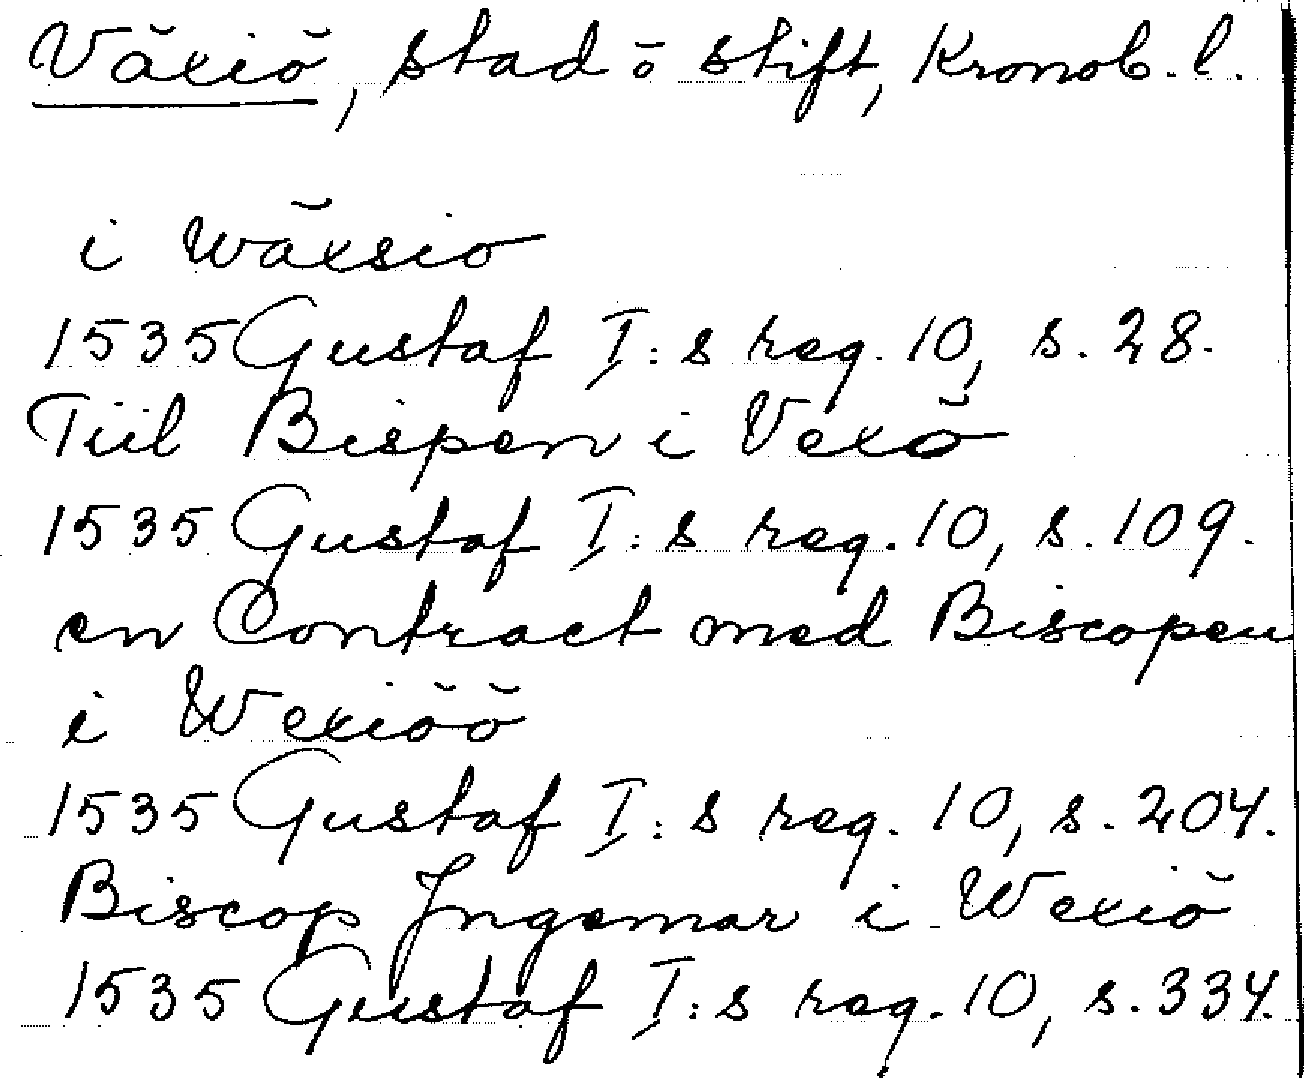 Växiö, stad ö stift, Kronob. l.
i Wäxsio
1535 Gustaf I:s reg. 10, s. 28.
Tiil Bispen i Vexö
1535 Gustaf I:s reg. 10, s. 109.
en Contract med Biscopen
i Wexiöö
1535 Gustaf I:s reg. 10, s. 204.
Biscop Ingemar i Wexiö
1535 Gustaf I:s reg. 10, s. 334.